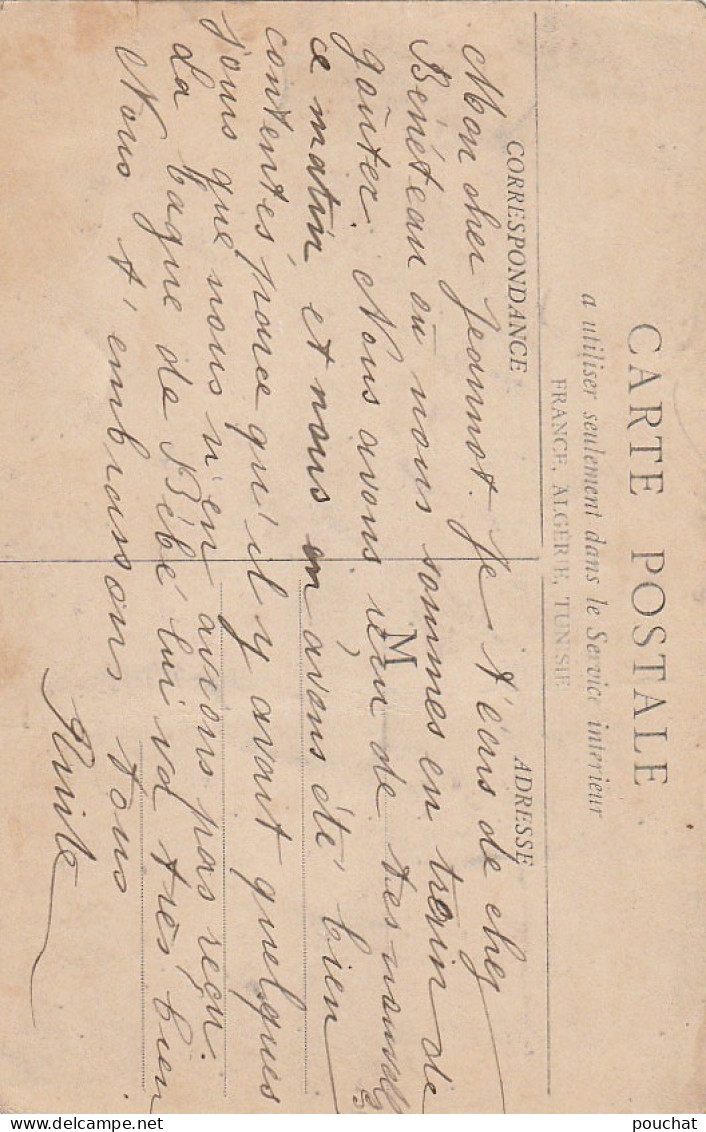 CARTE POSTALE
a utiliser seulement dans le Service interieur
FRANCE, ALGERIE, TUNISIE
CORRESPONDANCE
ADRESSE
M
Mon cher Jeannot. Je t'écris de chez
Bénéteau où nous sommes en train de
goûter. Nous avons reçu de tes nouvelles
ce matin, et nous en avons été bien
contentes parce qu'il y avait quelques
jours que nous n'en avions pas reçu.
La bague de Bébé lui va très bien
Nous t'embrassons tous.
pouchat